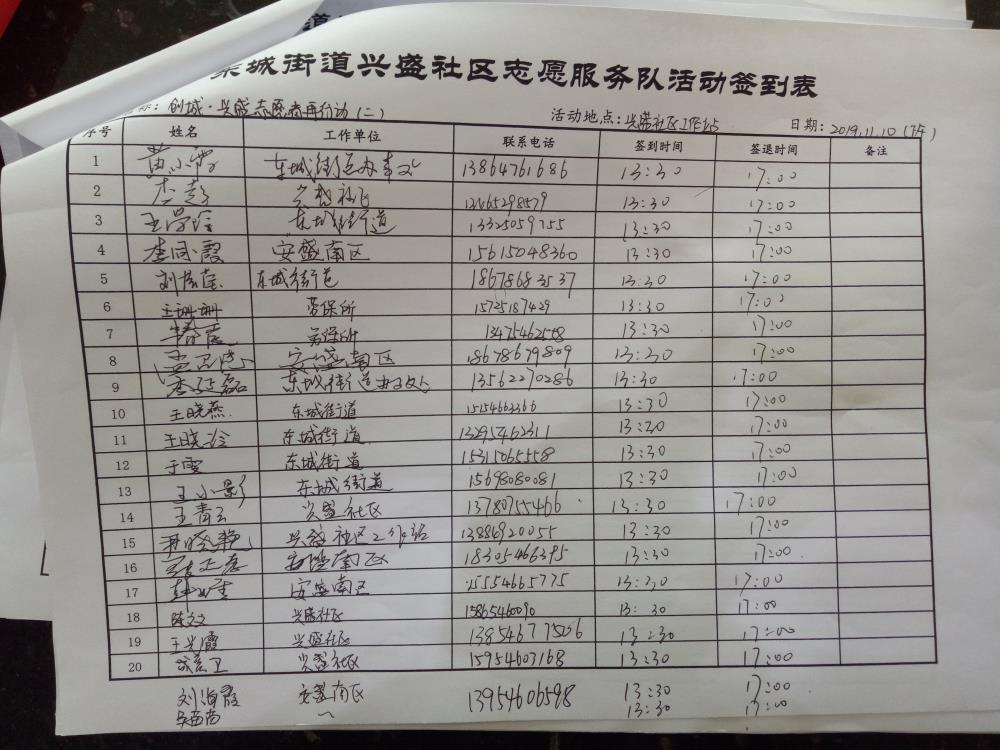 城街道兴盛社区志愿服务队活动签到表
称：创城·兴盛志愿者再行动（二） 活动地点：兴盛社区工作站 日期：2019.11.10（下午）
序号 姓名 工作单位 联系电话 签到时间 签退时间 备注
1 东城街道办事处 13864761686 13:30 17:00
2 兴盛社区 13:30 17:00
3 东城街道 13325059755 13:30 17:00
4 李同霞 安盛南区 15615048360 13:30 17:00
5 东城街道 18678683537 13:30 17:00
6 王珊珊 劳保所 15725187429 13:30 17:00
7 劳保所 13475462558 13:30 17:00
8 安盛南区 18678679809 13:30 17:00
9 东城街道办事处 13562270286 13:30 17:00
10 王晓燕 东城街道 13:30 17:00
11 王晓玲 东城街道 13295462311 13:30 17:00
12 于雯 东城街道 15315065558 13:30 17:00
13 王小影 东城街道 15698080081 13:30 17:00
14 王青云 兴盛社区 13780755466 13:30 17:00
15 兴盛社区工作站 13886920055 13:30 17:00
16 安盛南区 18305466395 13:30 17:00
17 安盛南区 15554665775 13:30 17:00
18 兴盛社区 15865460090 13:30 17:00
19 王光霞 兴盛社区 13:30 17:00
20 兴盛社区 15954607168 13:30 17:00
刘海霞 安盛南区 13954606598 13:30 17:00
13:30 17:00